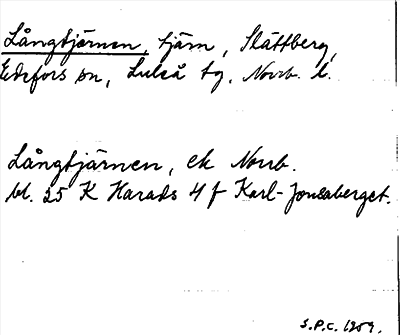 Långtjärnen, tjärn, Slättberg,
Edefors sn, Luleå tg, Norrb. l.
Långtjärnen, ek Norrb.
bl. 25 K Harads 4 f Karl-Jonsaberget.
S.P.C. 1959.